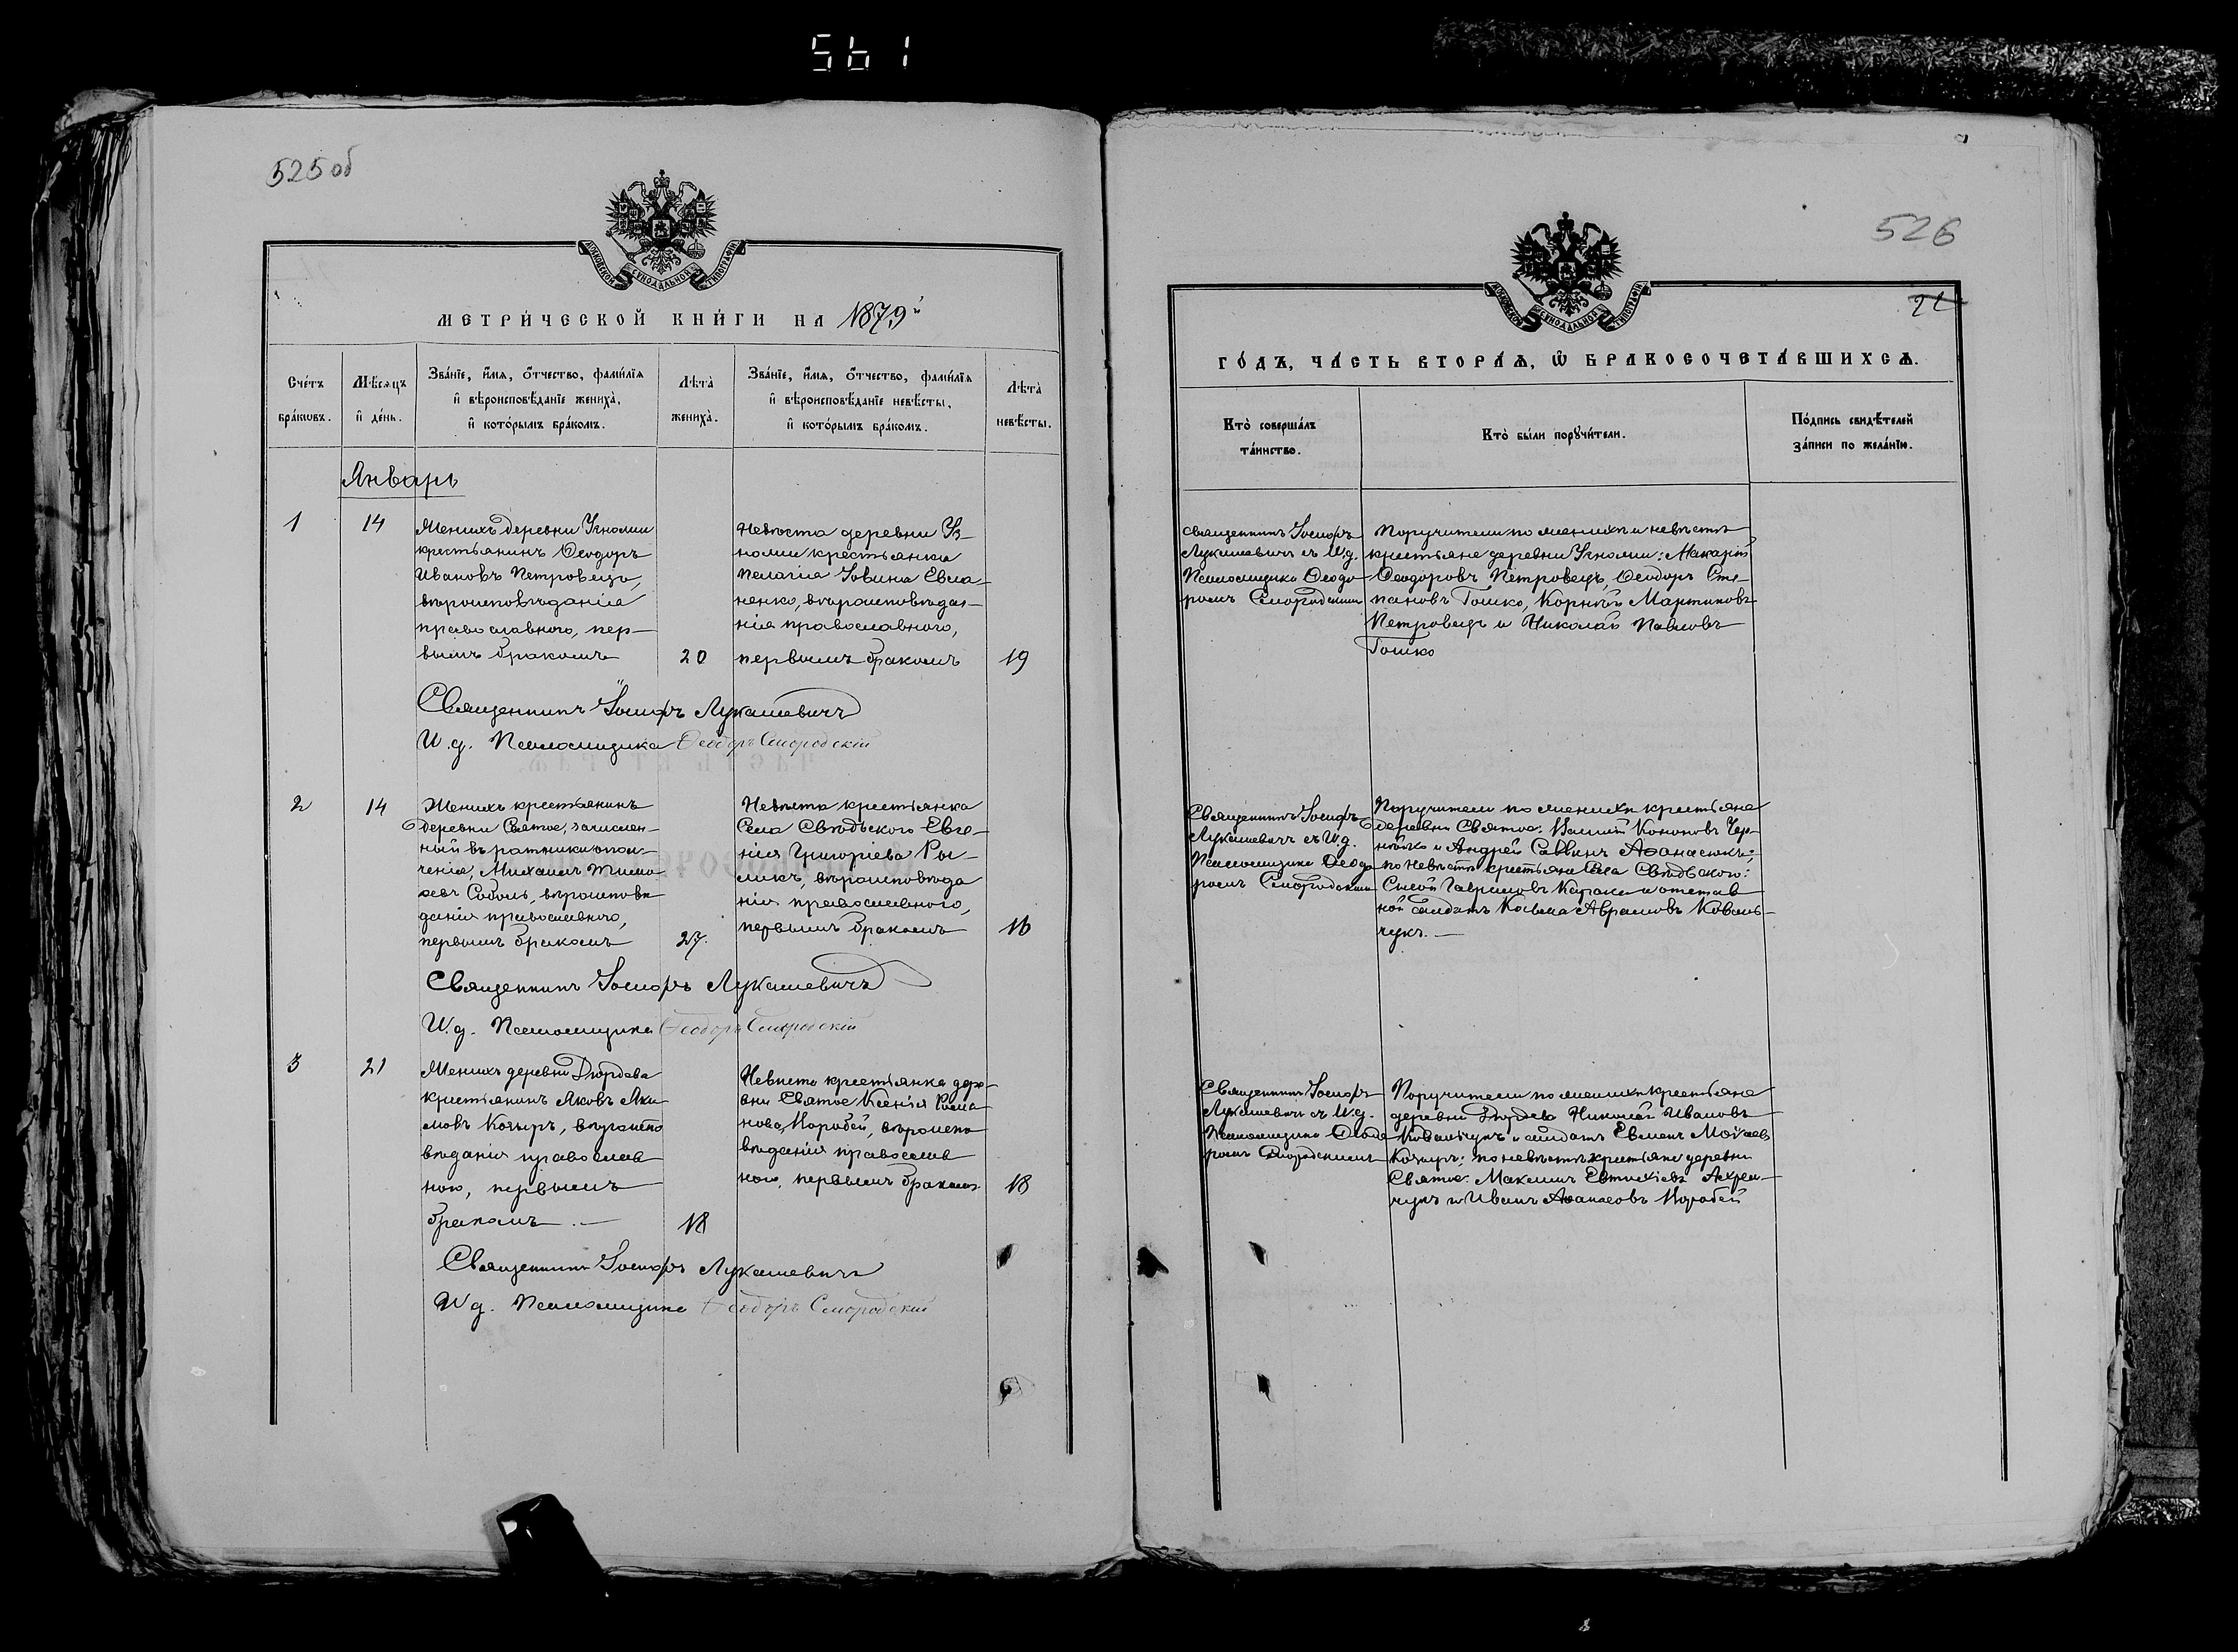 561
525 об
МОСКОВСКОЙ СѴНОДАЛЬНОЙ ТИПОГРАФІИ
МЕТРИ́ЧЕСКОЙ КНИ́ГИ НА 1879й
Сче́тъ бра́ковъ.
Мѣ́сяцъ и҆ де́нь.
Зва́нїе, и҆́мѧ, ѻ҆́тчество, фами́лїѧ
и҆ вѣроисповѣ́данїе жениха̀,
и҆ кото́рымъ бра́комъ.
Лѣта̀ жениха̀.
Зва́нїе, и҆́мѧ, ѻ҆́тчество, фами́лїѧ
и҆ вѣроисповѣ́данїе невѣ́сты,
и҆ кото́рымъ бра́комъ.
Лѣта̀ невѣ́сты.
Январь
1
14
Женихъ деревни Угномли
крестьянинъ Ѳеодоръ
Ивановъ Петровецъ,
вѣроисповѣданія
православного, пер-
вымъ бракомъ
20
Невѣста деревни Уг-
номли крестьянка
Пелагія Іовина Евла-
ненко, вѣроисповѣда-
нія православного,
первымъ бракомъ
19
Священникъ Іосифъ Лукашевичъ
И.д. Псаломщика Ѳеодоръ Смородскій
2
14
Женихъ крестьянинъ
деревни Святое, зачислен-
ный въ ратники опол-
ченія, Михаилъ Тимо
ѳевъ Соболь, вѣроисповѣ
данія православного,
первымъ бракомъ
27.
Невѣста крестьянка
Села Свѣдьского Евге-
нія Григоріева Ро-
ликъ, вѣроисповѣда
нія православного,
первымъ бракомъ
16
Священникъ Іосифъ Лукашевичъ
И.д. Псаломщика Ѳеодоръ Смородскій
3
21
Женихъ деревни Дюрдева
крестьянинъ Яковъ Аки
мовъ Козырь, вѣроиспо
вѣданія православ
ного, первымъ
бракомъ. —
18
Невѣста крестьянка дере-
вни Святое Ксенія Рома
нова Коробей, вѣроиспо
вѣданія православ
ного, первымъ бракомъ
18
Священникъ Іосифъ Лукашевичъ
И.д. Псаломщика Ѳеодоръ Смородскій
526
МОСКОВСКОЙ СѴНОДАЛЬНОЙ ТИПОГРАФІИ
ГО́ДЪ, ЧА́СТЬ ВТОРА́Ѧ, Ѽ БРАКОСОЧЕТА́ВШИХСѦ.
Кто̀ соверша́лъ
та́инство.
Кто̀ бы́ли порꙋчи́тели.
По́дпись свидѣ́телей
за́писи по жела́нїю.
Священникъ Іосифъ
Лукашевичъ съ И.д.
Псаломщика Ѳеодо
ромъ Смородскимъ
Поручители по женихѣ и невѣстѣ
крестьяне деревни Угномли: Макарій
Ѳеодоровъ Петровецъ, Ѳеодоръ Сте-
пановъ Гошко, Корнѣй Мартиновъ
Петровецъ и Николай Павловъ
Гошко
Священникъ Іосифъ
Лукашевичъ съ И.д.
Псаломщика Ѳеодо
ромъ Смородскимъ
Поручители по женихѣ крестьяне
деревни Святое: Василій Кононовъ Чер-
нойко и Андрей Саввинъ Аѳанасюкъ;
по невѣстѣ крестьяне Села Свѣдьского:
Сысой Гавриловъ Карака и отстав
ной солдатъ Косьма Аврамовъ Коваль-
чукъ. —
Священникъ Іосифъ
Лукашевичъ съ И.д.
Псаломщика Ѳеодо
ромъ Смородскимъ
Поручители по женихѣ крестьяне
деревни Дюрдева Николай Ивановъ
Ковальчукъ и солдатъ Евменъ Моѵсеевъ
Козырь; по невѣстѣ крестьяне деревни
Святое: Максимъ Евтихіевъ Ахрем-
чукъ и Иванъ Аѳанасовъ Коробей